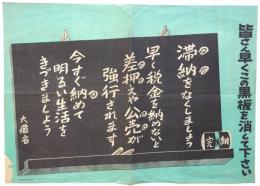 皆さん早くこの黒板を消して下さい
滞納をなくしましょう
早く税金を納めないと
差押えや公売が
強行されます
今すぐ納めて
明るい生活を
きづきましょう
大蔵省
完納